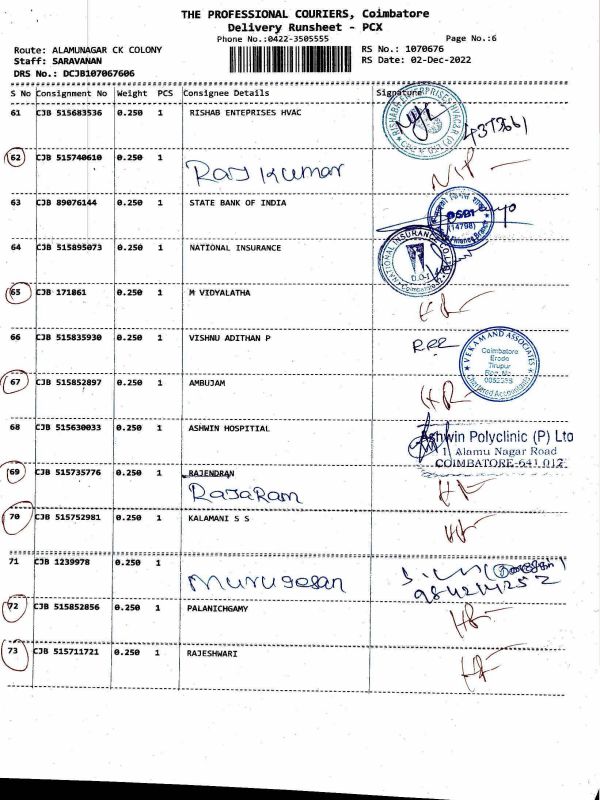 THE PROFESSIONAL COURIERS, Coimbatore
Delivery Runsheet - PCX
Phone No.:0422-3505555
Page No.:6
Route: ALAMUNAGAR CK COLONY
RS No.: 1070676
Staff: SARAVANAN
RS Date: 02-Dec-2022
DRS No.: DCJB107067606
S No Consignment No Weight PCS Consignee Details Signature
61 CJB 515683536 0.250 1 RISHAB ENTEPRISES HVAC
62 CJB 515740610 0.250 1
Raj Kumar
63 CJB 89076144 0.250 1 STATE BANK OF INDIA
SBI
(14798)
64 CJB 515895073 0.250 1 NATIONAL INSURANCE
NATIONAL INSURANCE CO.
D.O-I
Coimbatore
65 CJB 171861 0.250 1 M VIDYALATHA
66 CJB 515835930 0.250 1 VISHNU ADITHAN P
VEKAM AND ASSOCIATES
Coimbatore
Erode
Tirupur
Reg. No
Chartered Accountants
67 CJB 515852897 0.250 1 AMBUJAM
68 CJB 515630033 0.250 1 ASHWIN HOSPITIAL
Ashwin Polyclinic (P) Ltd
1, Alamu Nagar Road
COIMBATORE-641 012
69 CJB 515735776 0.250 1 RAJENDRAN
RajaRam
70 CJB 515752981 0.250 1 KALAMANI S S
71 CJB 1239978 0.250 1
Murugesan
72 CJB 515852856 0.250 1 PALANICHGAMY
73 CJB 515711721 0.250 1 RAJESHWARI